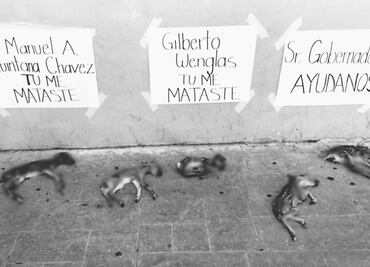 Manuel A.
uintana Chavez
TU ME
MATASTE
Gilberto
Wenglas
TU ME
MATASTE
Sr. Gobernado
AYUDANOS